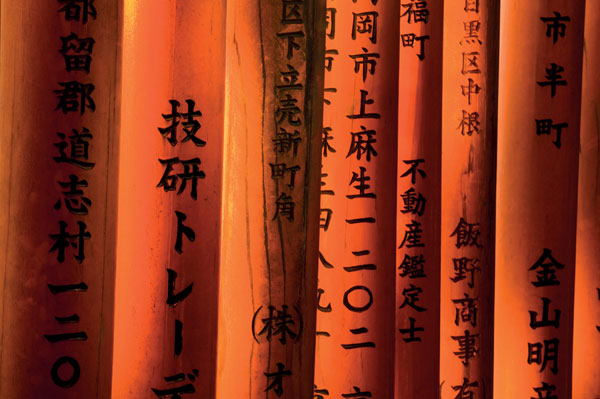 市半町
金山明
目黒区中根
飯野商事(有
福町
不動産鑑定士
岡市上麻生一二〇二
市下麻生四八九一
区下立売新町角
(株)オ
技研トレーデ
都留郡道志村一二〇